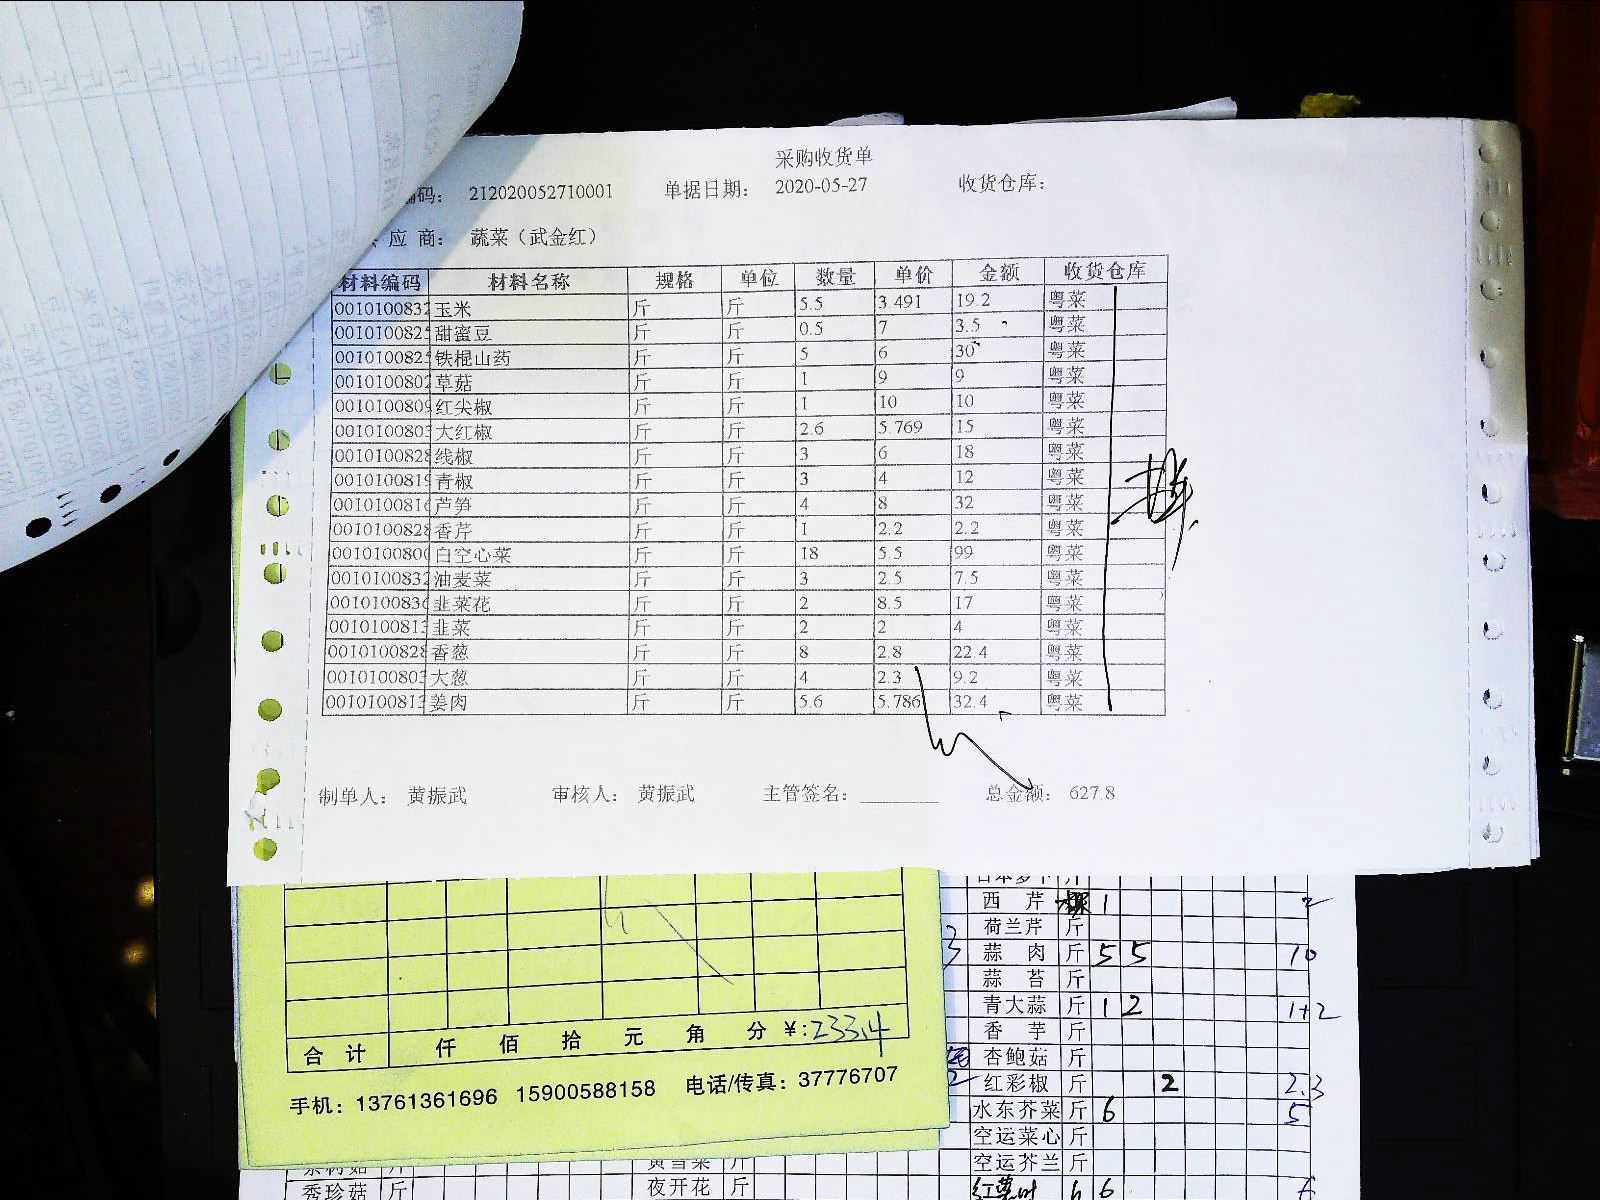 采购收货单
编码： 212020052710001 单据日期： 2020-05-27 收货仓库：
应 商： 蔬菜（武金红）
材料编码 材料名称 规格 单位 数量 单价 金额 收货仓库
0010100832 玉米 斤 斤 5.5 3.491 19.2 粤菜
001010082 甜蜜豆 斤 斤 0.5 7 3.5 粤菜
001010082 铁棍山药 斤 斤 5 6 30 粤菜
0010100802 草菇 斤 斤 1 9 9 粤菜
0010100809 红尖椒 斤 斤 1 10 10 粤菜
0010100803 大红椒 斤 斤 2.6 5.769 15 粤菜
0010100828 线椒 斤 斤 3 6 18 粤菜
0010100819 青椒 斤 斤 3 4 12 粤菜
0010100816 芦笋 斤 斤 4 8 32 粤菜
0010100828 香芹 斤 斤 1 2.2 2.2 粤菜
0010100800 白空心菜 斤 斤 18 5.5 99 粤菜
0010100832 油麦菜 斤 斤 3 2.5 7.5 粤菜
0010100836 韭菜花 斤 斤 2 8.5 17 粤菜
0010100813 韭菜 斤 斤 2 2 4 粤菜
0010100828 香葱 斤 斤 8 2.8 22.4 粤菜
0010100803 大葱 斤 斤 4 2.3 9.2 粤菜
0010100813 姜肉 斤 斤 5.6 5.786 32.4 粤菜
制单人： 黄振武 审核人： 黄振武 主管签名： 总金额： 627.8
合 计 仟 佰 拾 元 角 分 ¥:233.4
手机：13761361696 15900588158 电话/传真：37776707
西 芹 1 2
荷兰芹 斤
蒜 肉 斤 5 5 10
蒜 苔 斤
青大蒜 斤 1 2 1+2
香 芋 斤
杏鲍菇 斤
红彩椒 斤 2 2.3
水东芥菜 斤 6 5
空运菜心 斤
空运芥兰 斤
秀珍菇 斤 夜开花 斤